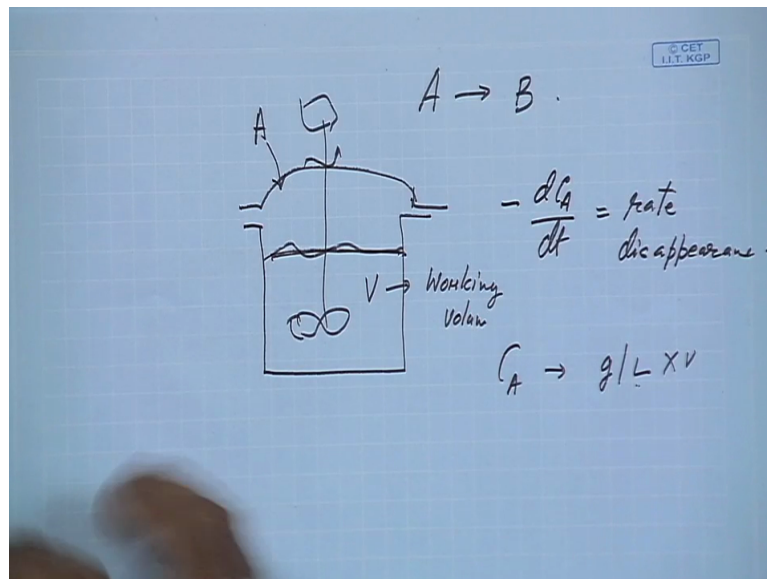 © CET
I.I.T. KGP
A → B .
A
- dC_A/dt = rate
disappearane
V → Working
volum
C_A → g/L × V